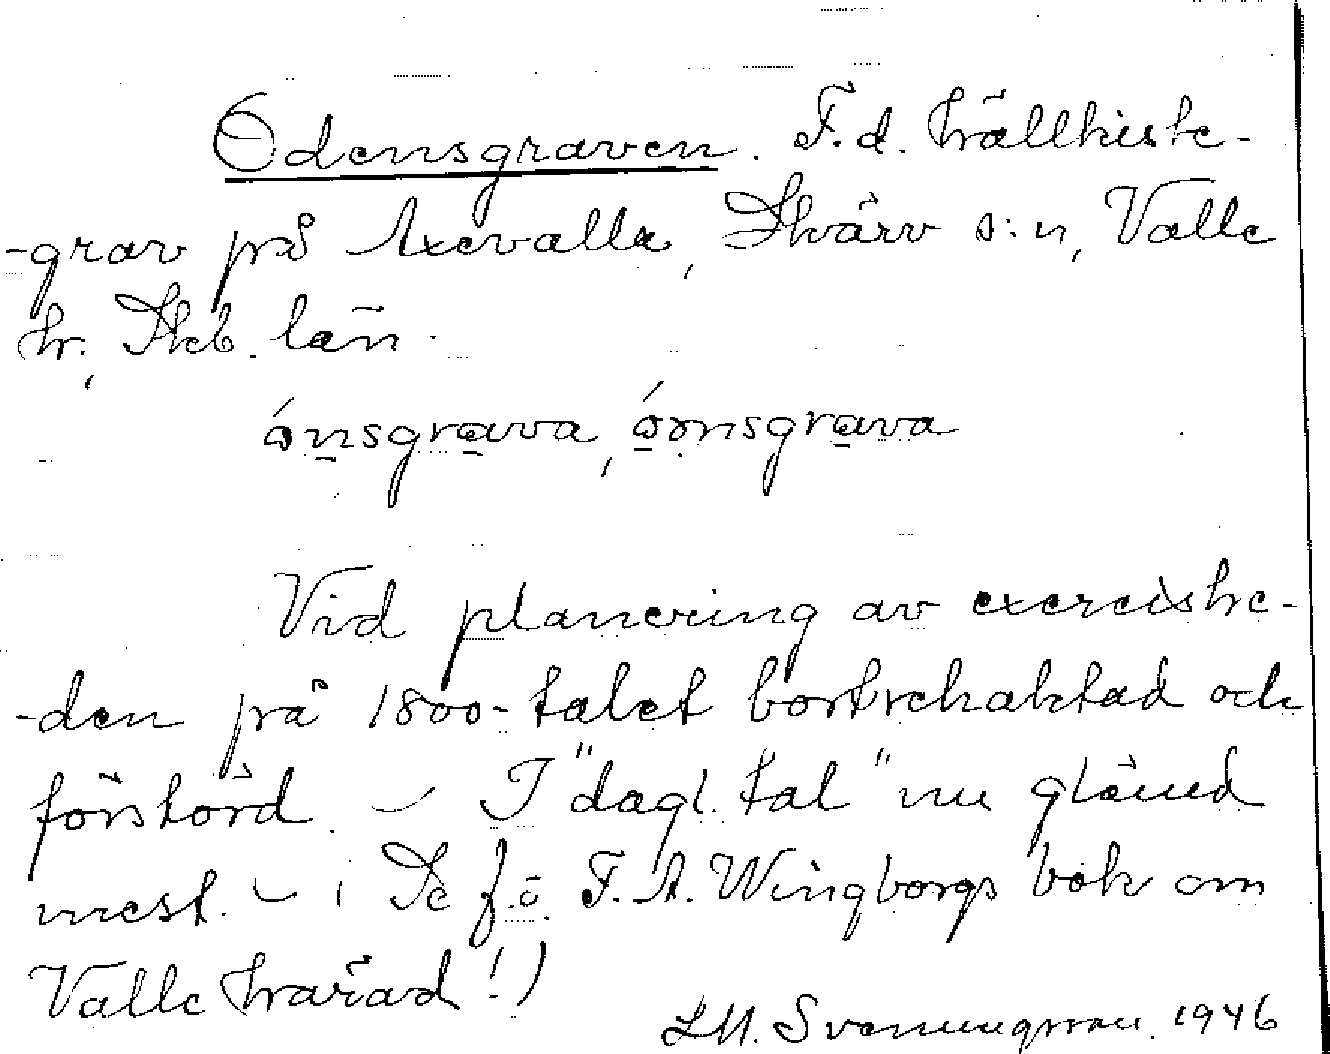 Odensgraven. F.d. hällkiste-
-grav på Axevalla, Skärv s:n, Valle
hr, Skb. län.
ónsgrava, óonsgrava
Vid planering av exercishe-
-den på 1800-talet bortschaktad och
förstörd. – I "dagl. tal" nu glömd
mest. – (Se f.ö. F.A. Wingborgs bok om
Valle härad!)
L.M. Svenungsson. 1946